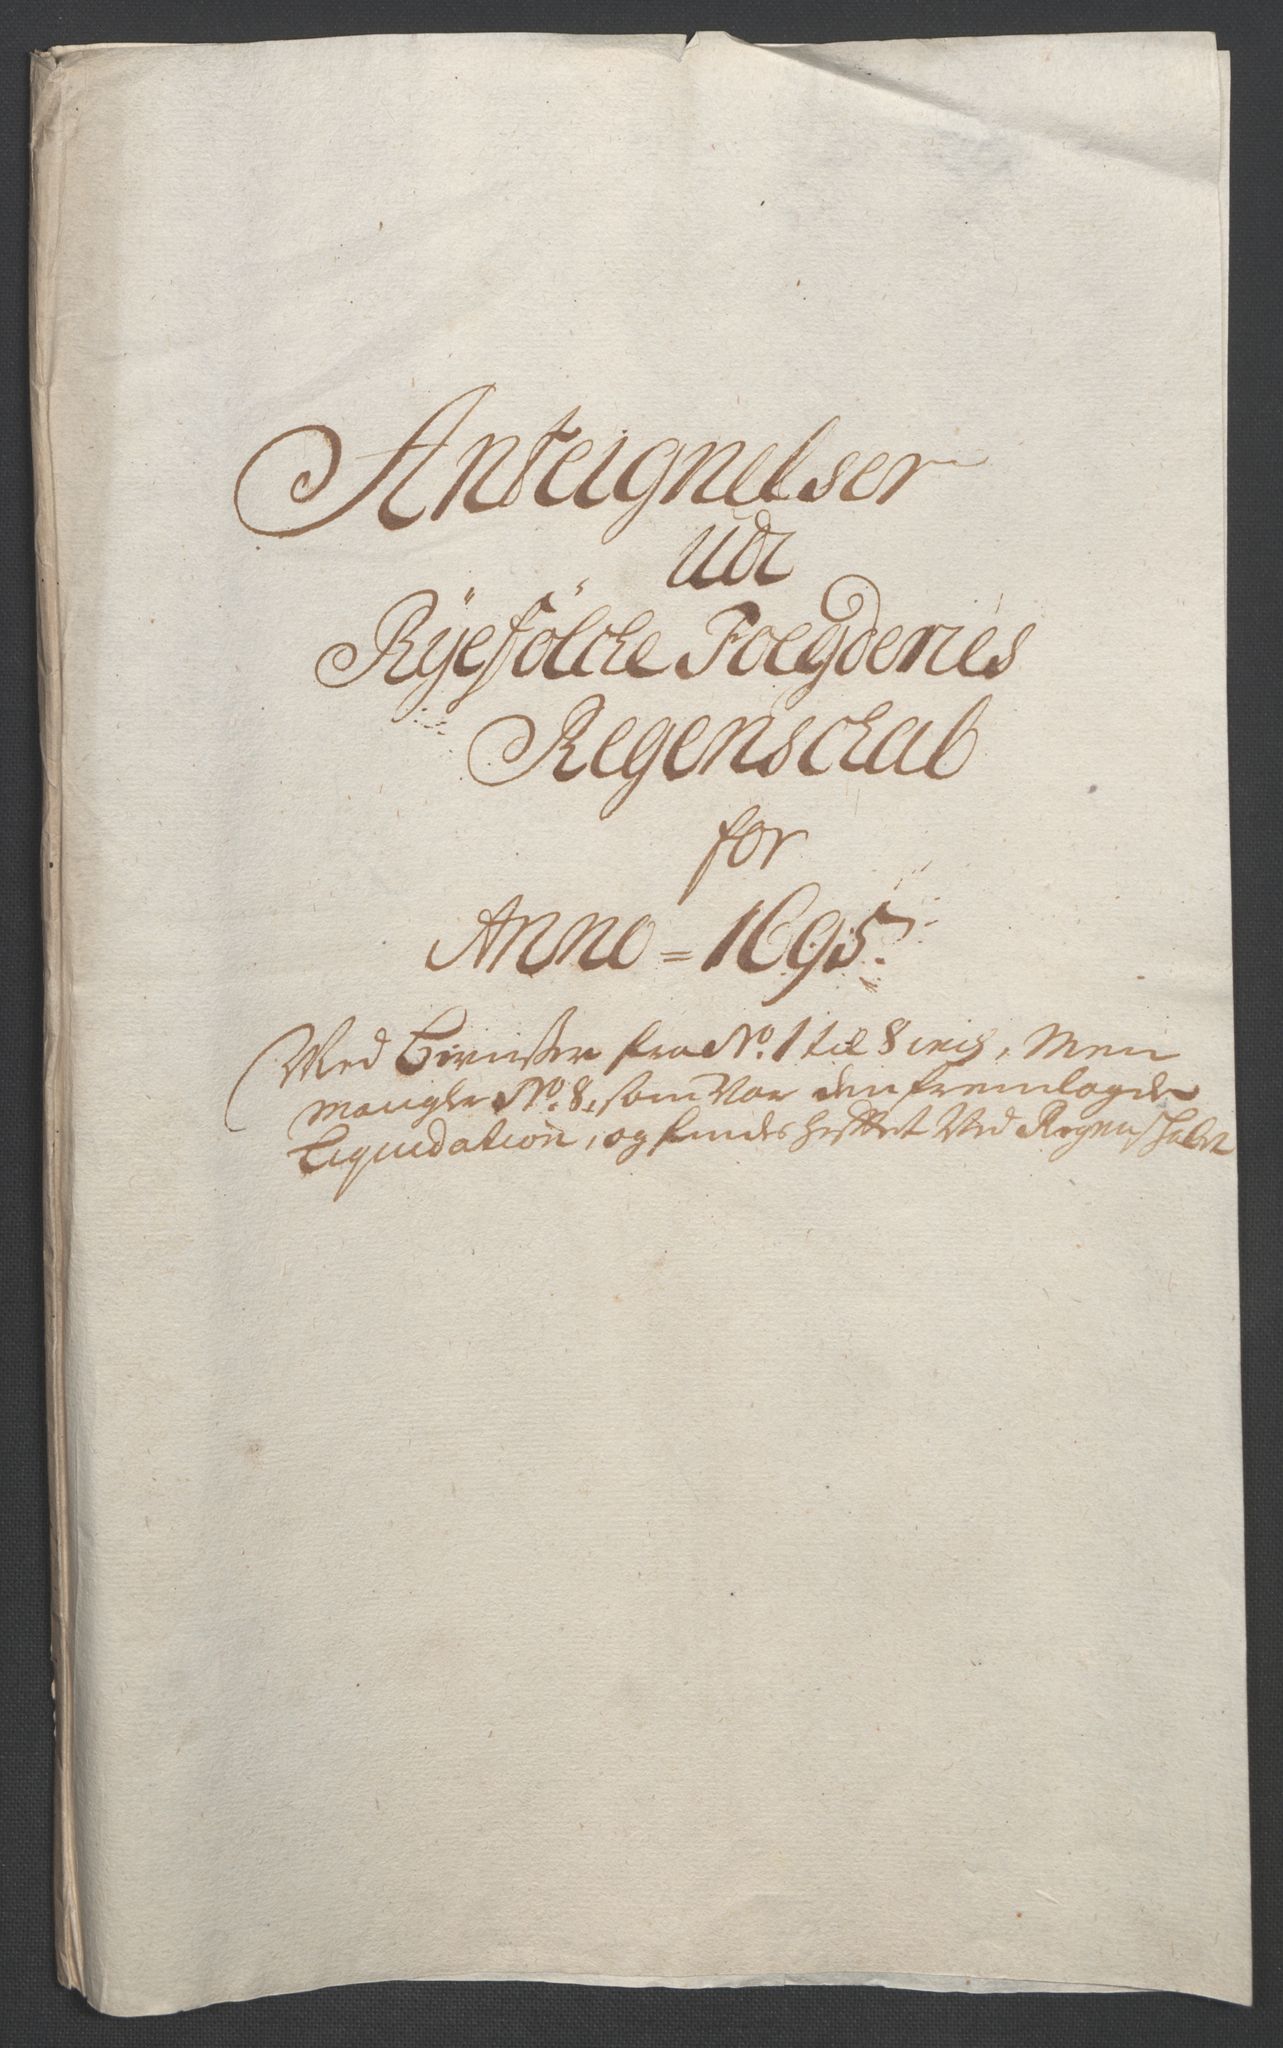 Anteignelser
udi
Ryefölcke Foegderies
Regenschab
for
Anno = 1695.
Med bewiiser fra No. 1 til 8 incl, Men
mangler No. 8, som var den fremlagde
Liquidation, og findes hefftet ved Regenschabet